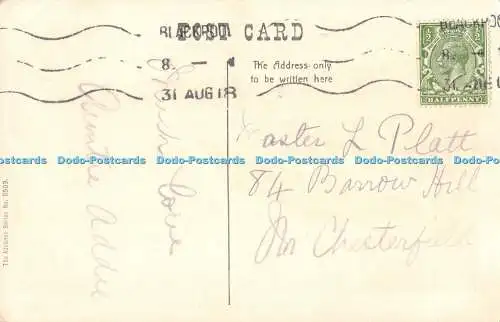 POST CARD
BLACKPOOL
8. — 4
31 AUG 18
The Address only
to be written here
HALFPENNY
Master L Platt
84 Barrow Hill
Nr Chesterfield
Much love
Auntie Addie
The Alphasa Series No. 0509.
Dodo-Postcards Dodo-Postcards Dodo-Postcards Dodo-Postcards Dodo-Postcards Dodo-Postcards